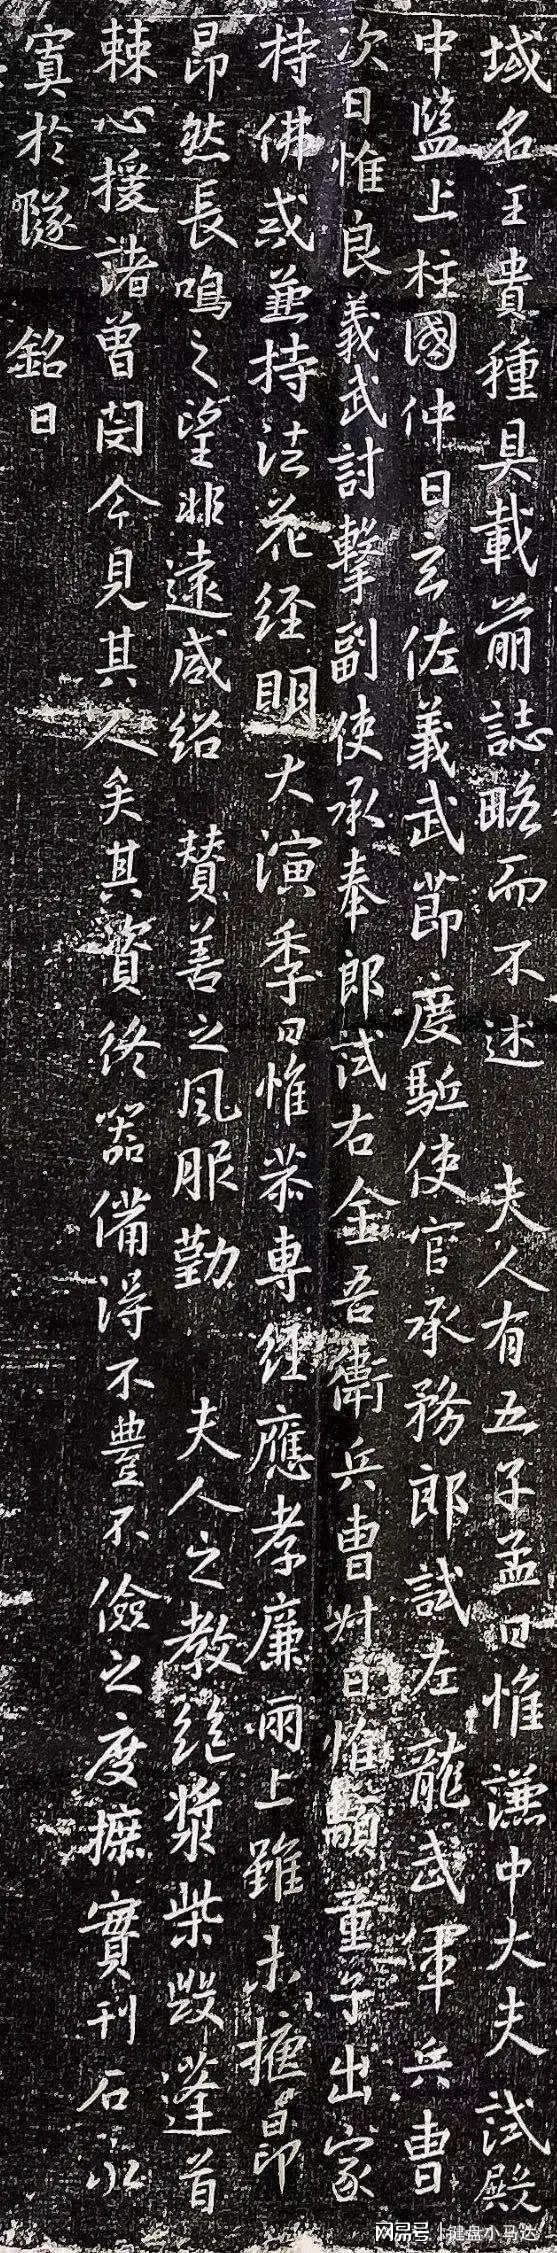 域名王貴種具載前誌略而不述 夫人有五子孟曰惟謙中大夫試殿
中監上柱國仲曰玄佐義武節度駈使官承務郎試左龍武軍兵曹
次曰惟良義武討擊副使承奉郎試右金吾衛兵曹对曰惟顒童子出家
持佛戒兼持法花经明大演季曰惟恭專经應孝廉兩上雖未攄昂
昂然長鳴之望非遠咸紹 賛善之風服勤 夫人之教絶漿柴毀蓬首
棘心援諸曾閔今見其人矣其資终器備得不豐不儉之度摭實刊石永
寘於隧 銘曰
网易号 | 键盘小马达